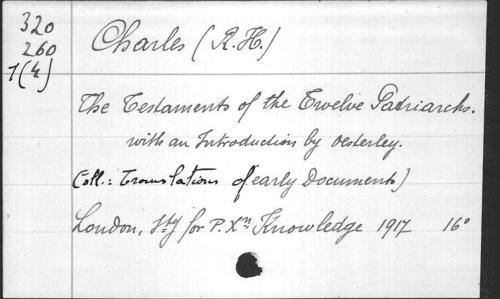 320
260
7(4)
Charles (R.H.)
The Testaments of the Twelve Patriarchs.
with an Introduction by Oesterley.
(Coll.: Translations of early Documents)
London, Sty for P. Xn Knowledge 1917 16°